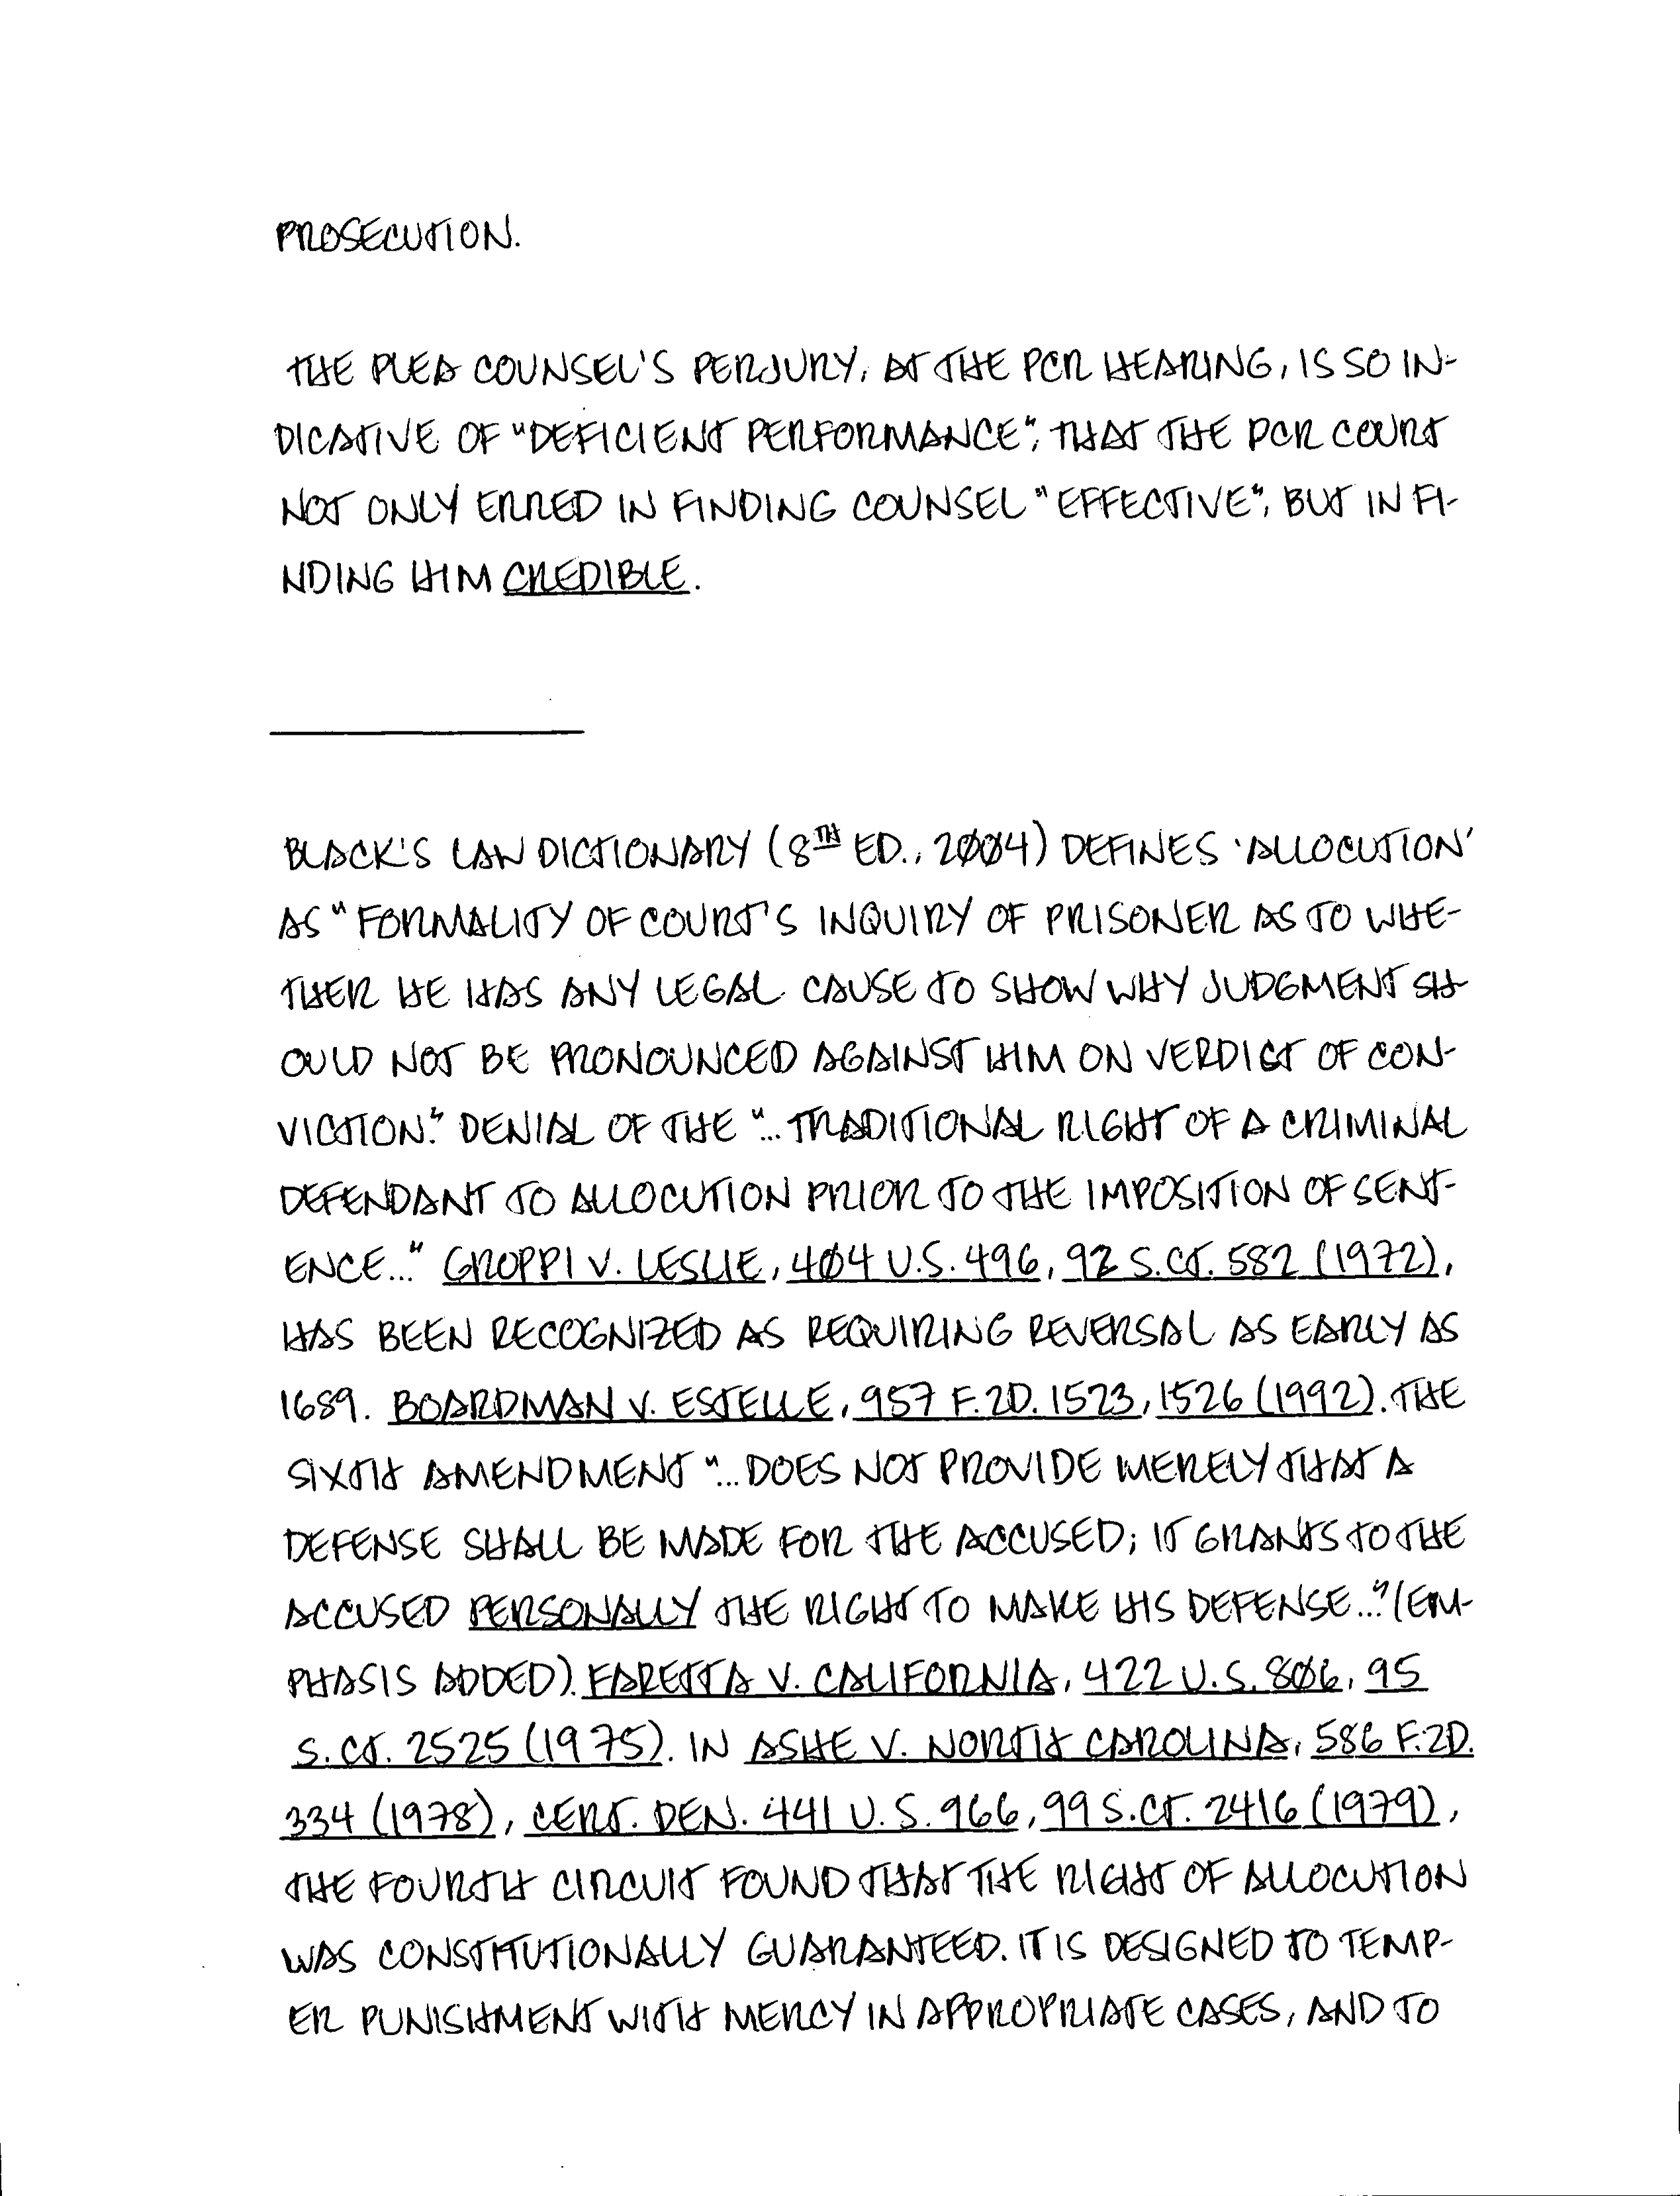 PROSECUTION.
THE PLEA COUNSEL'S PERJURY, AT THE PCR HEARING, IS SO IN-
DICATIVE OF "DEFICIENT PERFORMANCE", THAT THE PCR COURT
NOT ONLY ERRED IN FINDING COUNSEL "EFFECTIVE", BUT IN FI-
NDING HIM CREDIBLE.
BLACK'S LAW DICTIONARY (8TH ED., 2004) DEFINES 'ALLOCUTION'
AS "FORMALITY OF COURT'S INQUIRY OF PRISONER AS TO WHE-
THER HE HAS ANY LEGAL CAUSE TO SHOW WHY JUDGMENT SH-
OULD NOT BE PRONOUNCED AGAINST HIM ON VERDICT OF CON-
VICTION." DENIAL OF THE "...TRADITIONAL RIGHT OF A CRIMINAL
DEFENDANT TO ALLOCUTION PRIOR TO THE IMPOSITION OF SENT-
ENCE..." GROPPI V. LESLIE, 404 U.S. 496, 92 S.CT. 582 (1972),
HAS BEEN RECOGNIZED AS REQUIRING REVERSAL AS EARLY AS
1689. BOARDMAN V. ESTELLE, 957 F.2D. 1523, 1526 (1992). THE
SIXTH AMENDMENT "...DOES NOT PROVIDE MERELY THAT A
DEFENSE SHALL BE MADE FOR THE ACCUSED; IT GRANTS TO THE
ACCUSED PERSONALLY THE RIGHT TO MAKE HIS DEFENSE..." (EM-
PHASIS ADDED). FARETTA V. CALIFORNIA, 422 U.S. 806, 95
S.CT. 2525 (1975). IN ASHE V. NORTH CAROLINA, 586 F.2D.
334 (1978), CERT. DEN. 441 U.S. 966, 99 S.CT. 2416 (1979),
THE FOURTH CIRCUIT FOUND THAT THE RIGHT OF ALLOCUTION
WAS CONSTITUTIONALLY GUARANTEED. IT IS DESIGNED TO TEMP-
ER PUNISHMENT WITH MERCY IN APPROPRIATE CASES, AND TO